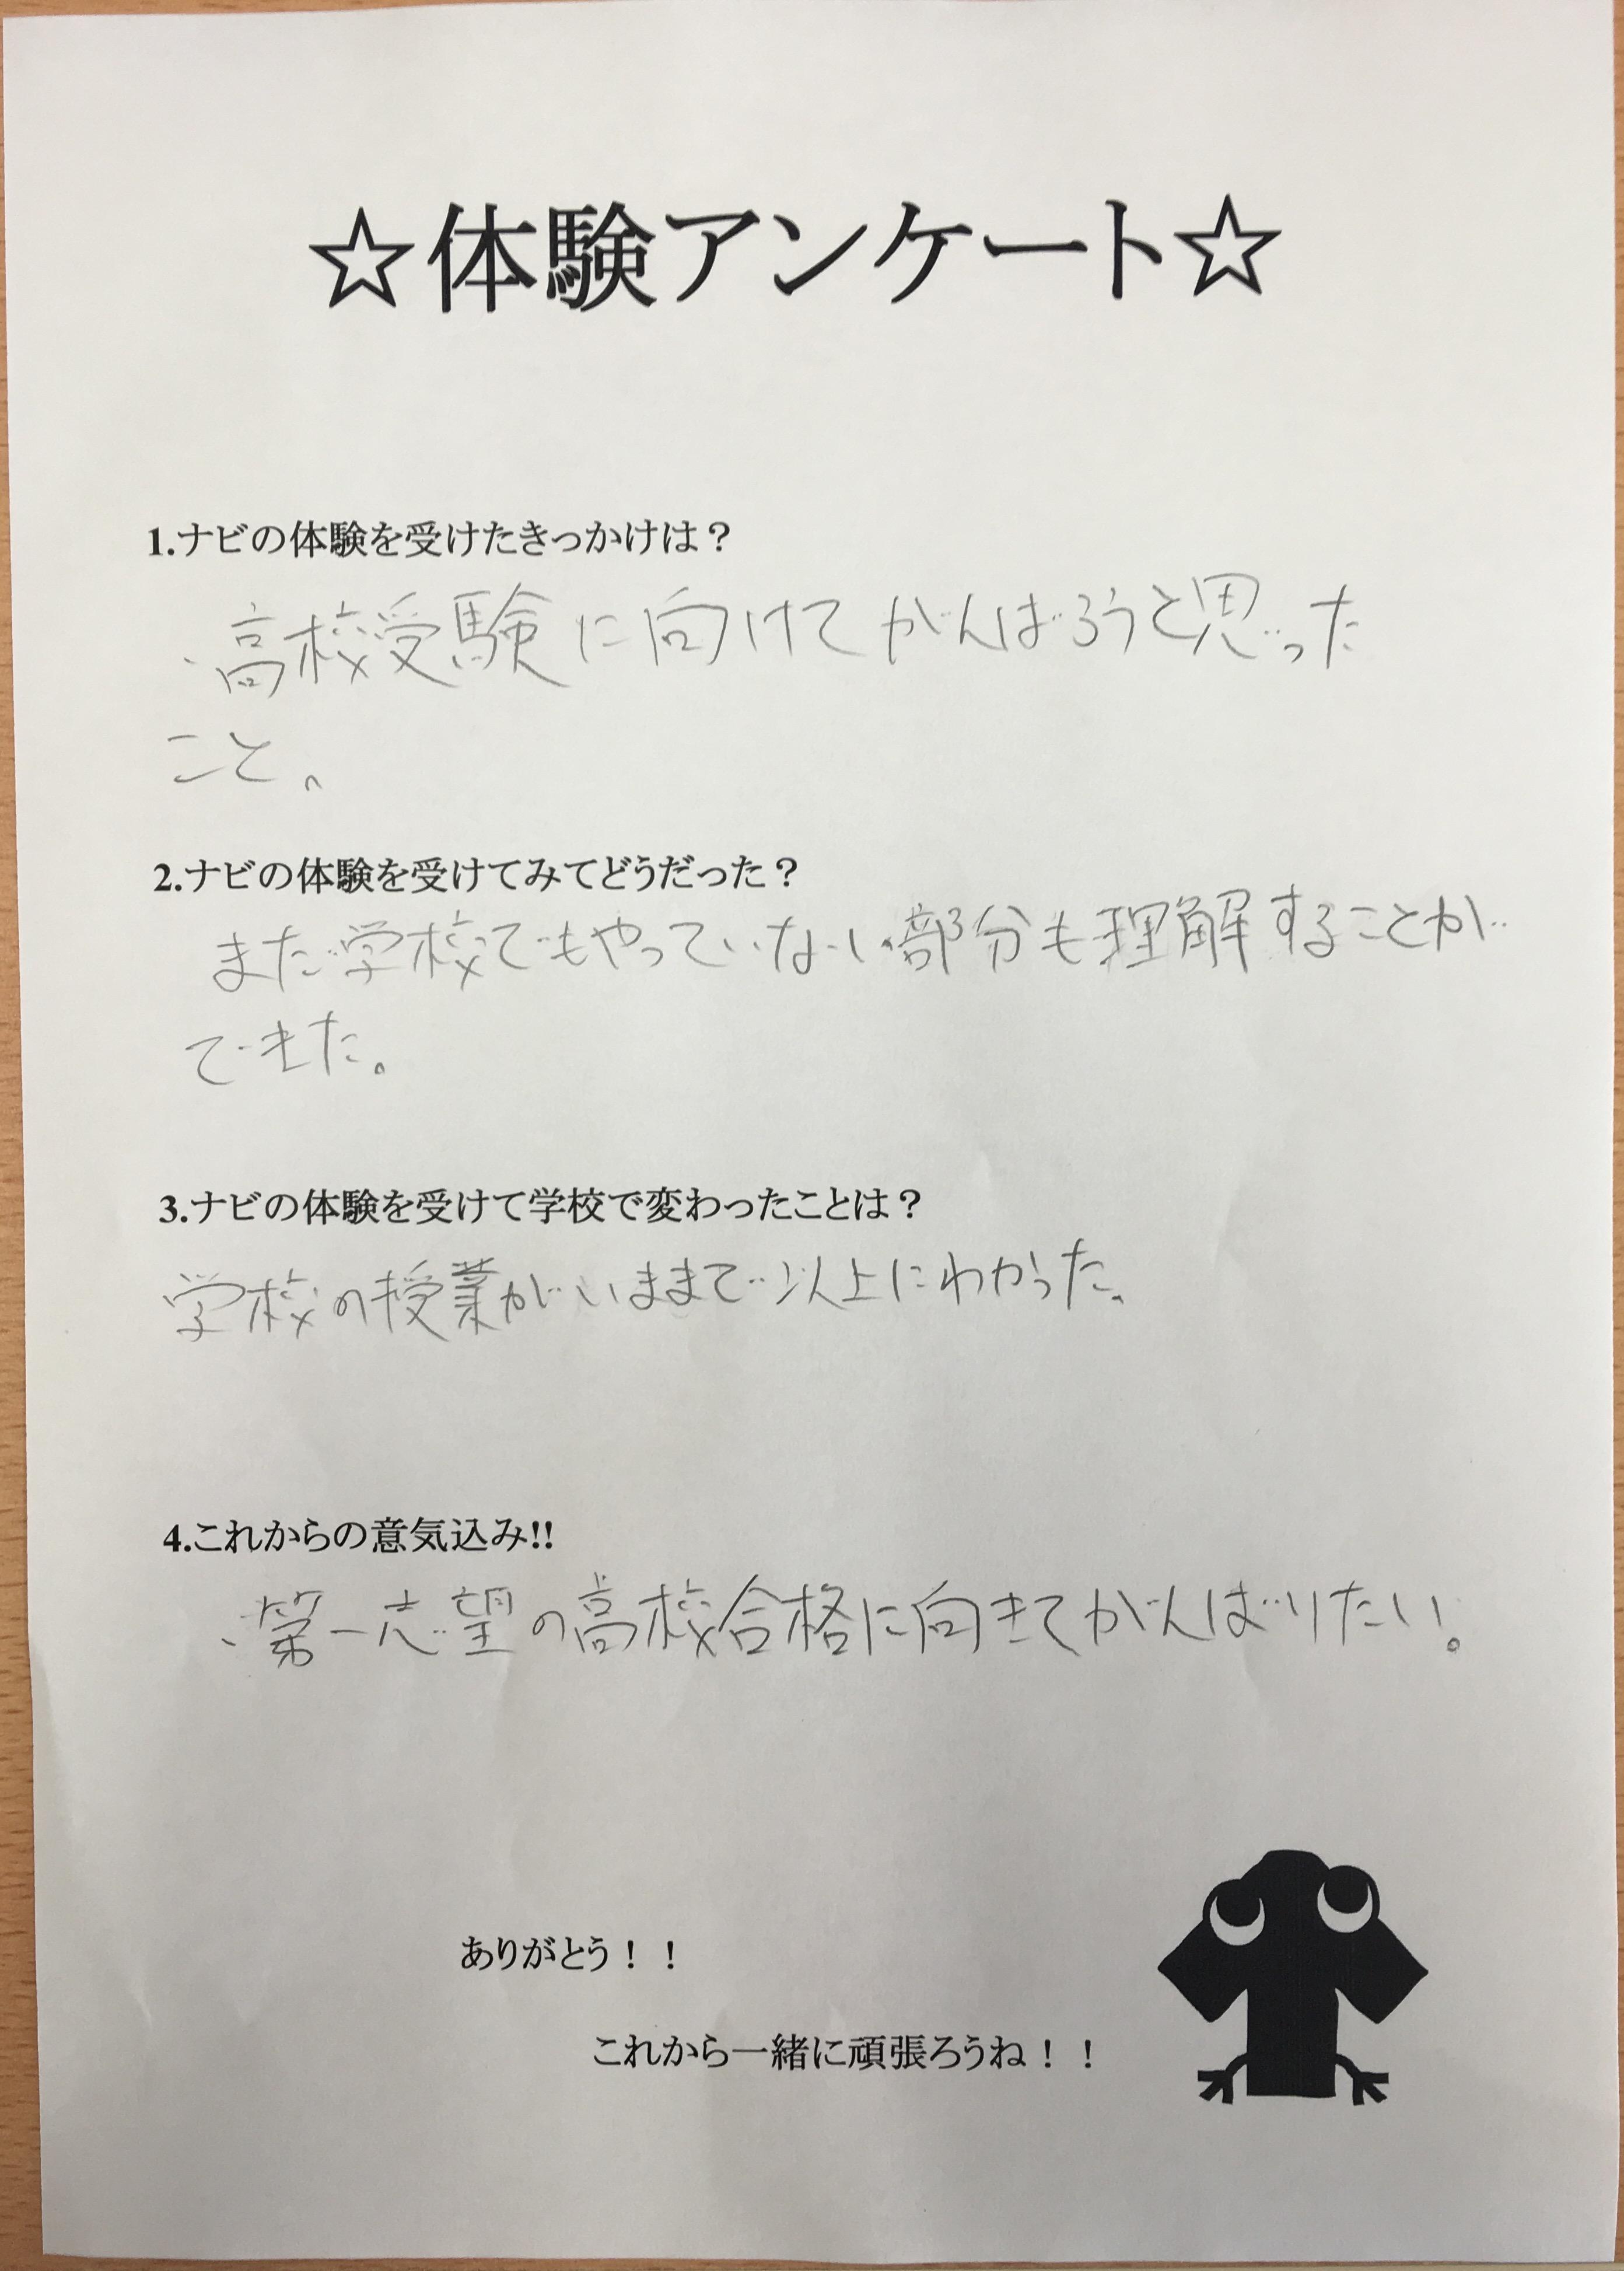 ☆体験アンケート☆
1.ナビの体験を受けたきっかけは？
・高校受験に向けてがんばろうと思った
こと。
2.ナビの体験を受けてみてどうだった？
まだ学校でもやっていない部分も理解することが
できた。
3.ナビの体験を受けて学校で変わったことは？
学校の授業がいままで以上にわかった。
4.これからの意気込み!!
・第一志望の高校合格に向きてがんばりたい。
ありがとう！！
これから一緒に頑張ろうね！！